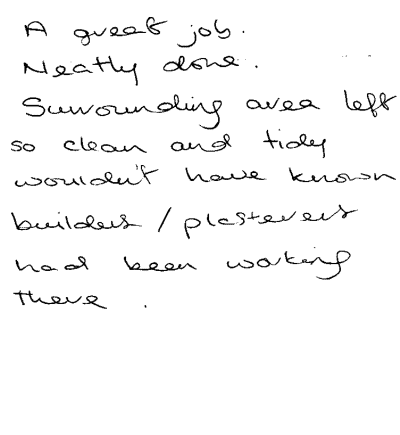 A great job.
Neatly done.
Surrounding area left
so clean and tidy
wouldn't have known
builders / plasterers
had been working
there .